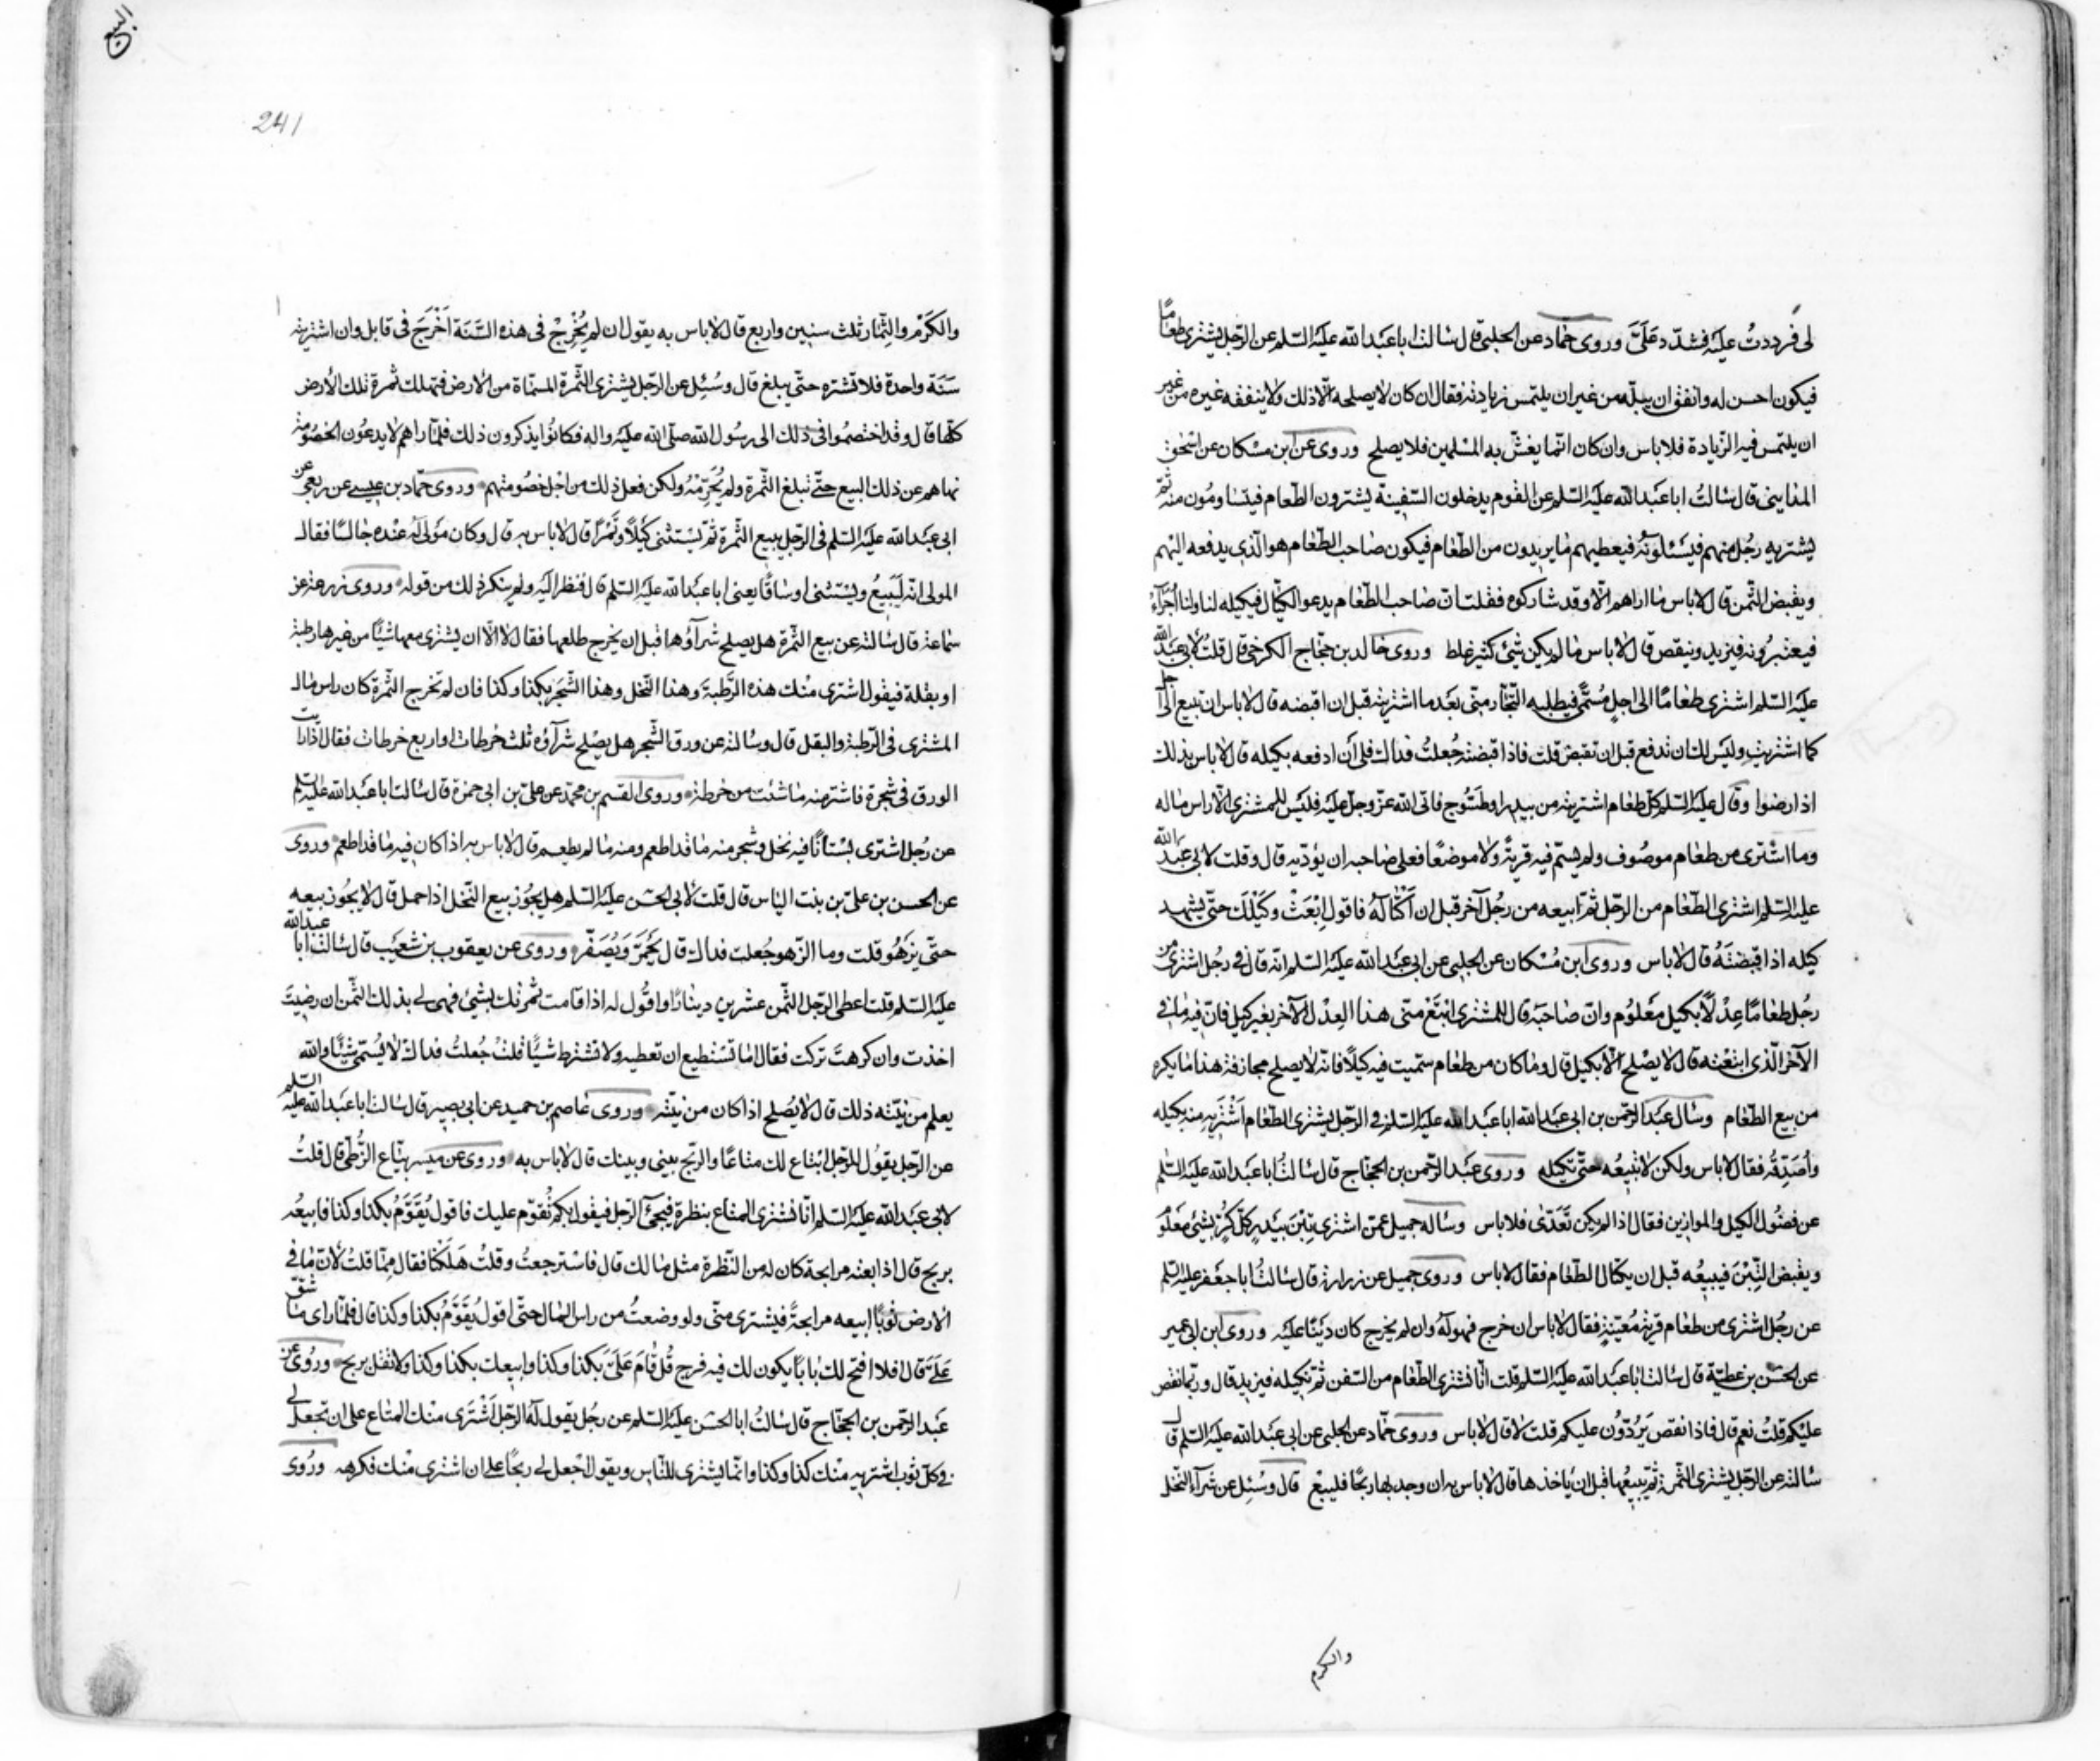 لى فرددتُ عليه فشدّد عَلَىَّ وروى حمّاد عن الحلبى قال سالت اباعبد الله عليه السّلم عن الرّجل يشترى طعامًا
فيكون احسن له وانفق ان يبلّه من غير ان يلتمس زيادته فقال ان كان لا يصلحه الّا ذلك ولا ينفقه غيره من غير
ان يلتمس فيه الزّيادة فلا باس وان كان انّما يغشّ به المسلمين فلا يصلح وروى عن ابن مسكان عن اسحق
المداينى قال سالتُ اباعبد الله عليه السّلم عن القوم يدخلون السّفينة يشترون الطّعام فيتساومُون منه ثمّ
يشتريه رجُل منهم فيسئلونه فيعطيهم ما يريدون من الطّعام فيكون صاحب الطّعام هو الّذى يدفعه اليهم
ويقبض الثّمن قال لا باس ما اراهم الّا وقد شاركوه فقلت انّ صاحب الطّعام يدعو الكيّال فيكيله لنا ولنا اُجَرآءُ
فيعتبرُونه فيزيد وينقص قال لا باس ما لم يكن شئ كثير غلط وروى خالد بن حجّاج الكرخى قال قلت لابى عبد الله
عليه السّلم اشترى طعامًا الى اجلٍ مُسمًّى فيطلبه التّجّار منّى بعد ما اشتريته قبل ان اقبضه قال لا باس ان تبيع الى اجل
كما اشتريت وليس لك ان تدفع قبل ان تقبض قلت فاذا قبضته جُعلتُ فداك فلى اَن ادفعه بكيله قال لا باس بذلك
اذا رضوا وقال عليه السّلم كلّ طعام اشتريته من بيدر او طسّوج فاتى الله عزّ وجلّ عليه فليس للمشترى الّا راس ماله
وما اشترى من طعام موصُوف ولم يسمّ فيه قريةً ولا موضعًا فعلى صاحبه ان يؤدّيه قال وقلت لابى عبد الله
عليه السّلم اشترى الطّعام من الرّجل ثمّ ابيعه من رجُل آخر قبل ان اَكْتالَهُ فاقول اِبْعَثْ وَكيْلَكَ حتّى يشهد
كيله اذا قبضتَهُ قال لا باس وروى ابن مُسْكان عن الحلبى عن ابى عبد الله عليه السّلم انه قال فى رجُل اشترى من
رجُل طعامًا عِدْلًا بكيل مَعلُوم وانّ صاحبَه قال للمشترى ابتَعْ منّى هذا العِدْل الآخر بغير كيل فانّ فيه ما فى
الآخر الّذى ابتعْته قال لا يصْلح الّا بكيل قال وما كان من طعام سمّيت فيه كيلًا فانّه لا يصلح مجازفة هذا ما يكره
من بيع الطّعام وسال عبد الرّحمن بن ابى عبد الله اباعبد الله عليه السّلم فى الرّجل يشترى الطّعام اَشْتَرِيْهِ منه بكيله
واُصَدِّقُه فقال لا باس ولكن لا تبيعُه حتّى تكيله وروى عبد الرّحمن بن الحجّاج قال سالتُ اباعبد الله عليه السّلم
عن فضُول الكيل والموازين فقال اذا لم يكن تَعَدّى فلا باس وساله جميل عمّن اشترى تِبْنَ بَيْدَرٍ كلّ كُرٍّ بشئ مَعْلُوم
ويقبض التِّبْنَ فيبيعُه قبل ان يكتال الطّعام فقال لا باس وروى جميل عن زرارة قال سالتُ اباجَعفر عليه السّلم
عن رجُل اشترى من طعام قريةٍ مُعيّنةٍ فقال لا باس ان خرج فهو لَهُ وان لم يخرج كان دَيْنًا عليه وروى ابن ابى عمير
عن الحسَن بن عطيّة قال سالت اباعَبد الله عليه السّلم قلت انّا نشترى الطّعام من السّفن ثمّ نكيله فيزيد قال وربّما نقص
عليكم قلتُ نعم قال فاذا نقص يَرُدّوُن عليكم قلت لا قال لا باس وروى حمّاد عن الحلبى عن ابى عبد الله عليه السّلم قال
سالته عن الرّجل يشترى الثّمرة ثمّ يبيعُها قبل ان ياخذها قال لا باس به ان وجد بها ربحًا فليبع قال وسُئِل عن شرآء النّخل
والكرم
البيع
241
والكَرْم والثِّمار ثلث سنين واربع قال لا باس به يقول ان لم يُخْرِجْ فى هذه السَّنَة اَخْرَجَ فى قابل وان اشتريته
سَنَة واحدة فلا تشتره حتّى يبلغ قال وسُئِل عن الرّجل يشترى الثّمرة المسمّاة من الارض فتهلك ثمرة تلك الأرض
كلّها قال وقد اختصمُوا فى ذلك الى رسُول الله صلّى الله عليه واله فكانوُا يذكرون ذلك فلمّا راهم لا يدعُون الخصُومة
نهاهم عن ذلك البيع حتّى تبلغ الثّمرة ولم يُحَرِّمْهُ ولكن فعل ذلك من اَجْل خصُومتهم وروى حمّاد بن عيسى عن ربعى عن
ابى عبد الله عليه السّلم فى الرّجل يبيع الثّمرة ثمّ يَسْتثنى كَيلًا وتَمْرًا قال لا باس به قال وكان مَولًى لَهُ عنْده جالسًا فقال
المولى انّه لَيَبِيْعُ ويَسْتثنى اوساقًا يعنى اباعبد الله عليه السّلم قال فنظر اليه ولم ينكر ذلك من قوله وروى زرعة عن
سماعة قال سالته عن بيع الثّمرة هل يصلح شرآؤها قبل ان يخرج طلعها فقال لا الّا ان يشترى معها شيئًا من غيرها رطبة
او بقلة فيقول اشترى منك هذه الرَّطبةَ وهذا النّخل وهذا الشّجر بكذا وكذا فان لم تخرج الثّمرة كان راس مال
المشترى فى الرّطبة والبقل قال وسالته عن ورق الشّجر هل يصْلح شرآؤه ثلث خرطات او اربع خرطات فقال اذا رايت
الورق فى شجرة فاشتر منه ما شئت من خرطة وروى القسم بن محمّد عن علىّ بن ابى حمزة قال سالت اباعبد الله عليه السّلم
عن رجُل اشترى بُسْتانًا فيه نخل وشجر منه ما قد اطعم ومنه ما لم يطعم قال لا باس به اذا كان فيه ما قد اطعم وروى
عن الحسن بن علىّ بن بنت الياس قال قلت لابى الحسَن عليه السّلم هل يجُوز بيع النّخل اذا حمل قال لا يجُوز بيعه
حتّى يَزْهُوَ قلت وما الزّهو جُعلت فداك قال يَحْمَرَّ وَيَصْفَرَّ وروى عن يعقوب بن شعيَب قال سالت ابا عبد الله
عليه السّلم قلت اعطى الرّجل الثّمن عشرين دينارًا واقوُل له اذا قامت ثمرتك بشئ فهى لى بذلك الثّمن ان رضيتَ
اخذت وان كرهتَ تركت فقال اما تَسْتطيع ان تعطيه ولا تشترط شيئًا قلت جُعلتُ فداك لا يُسمّى شيئًا والله
يعلم من نيّته ذلك قال لا يصُلح اذا كان من نيّته وروى عاصم بن حميد عن ابى بصير قال سالت اباعبد الله عليه السّلم
عن الرّجل يقوُل للرّجل ابْتاع لك متاعًا والرّبح بينى وبينك قال لا باس به وروى عن ميسر بيّاع الزُّطّى قال قلتُ
لابى عبد الله عليه السّلم انّا نشترى المتاع بنظرة فيجئ الرّجل فيقول بكم تُقوّم عليك فاقول يُقَوَّمُ بكذا وكذا فابيعُه
بربح قال اذا بعته مرابحة كان له من النّظرة مثل مالك قال فاسترجعتُ وقلتُ هَلَكْنا فقال ممّا قلتُ لانّ ما فى
الارض ثَوبًا ابيعه مرابحةً فيشترى منّى ولو وضعتُ من راس المال حتّى اقول يُقَوَّمُ بكذا وكذا قال فلمّا راى ما شقّ
عَلَىَّ قال افلا افتح لك بابًا يكون لك فيه فرج قُل قامَ عَلَىَّ بكذا وكذا وابيعك بكذا وكذا ولا تقل بربح وروُى عن
عَبد الرّحمن بن الحجّاج قال سالتُ ابا الحسَن عليه السّلم عن رجُل يقول لَهُ الرّجل اَشْتَرِى منك المتاع على ان تجعل لى
فى كلّ ثوب اشتريه منك كذا وكذا وانّما يشترى للنّاس ويقول اجْعل لى ربحًا على ان اشترى منْك فكرهه وروُى